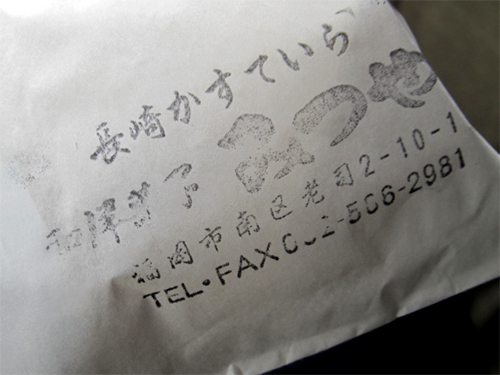 長崎かすていら
和洋菓子 みつせ
福岡市南区老司2-10-1
TEL・FAX092-566-2981